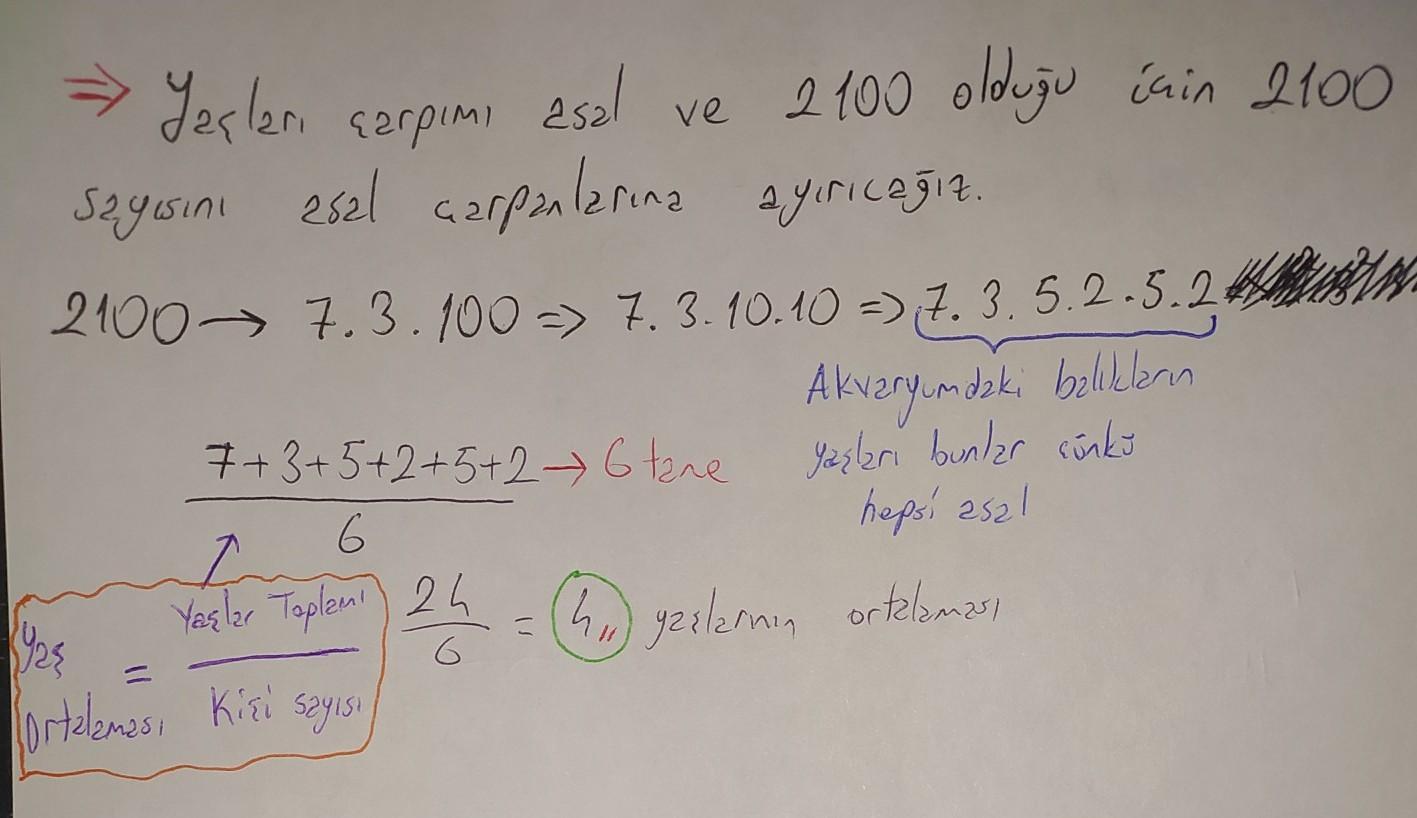 ⇒ Yaşları çarpımı asal ve 2100 olduğu için 2100
sayısını asal çarpanlarına ayırıcağız.
2100 → 7.3.100 => 7.3.10.10 => 7.3.5.2.5.2
Akvaryumdaki balıkların
yaşları bunlar çünkü
hepsi asal
7+3+5+2+5+2 → 6 tane
6
Yaş Ortalaması = Yaşlar Toplamı
Kişi sayısı
24
6
= 4,, yaşlarının ortalaması